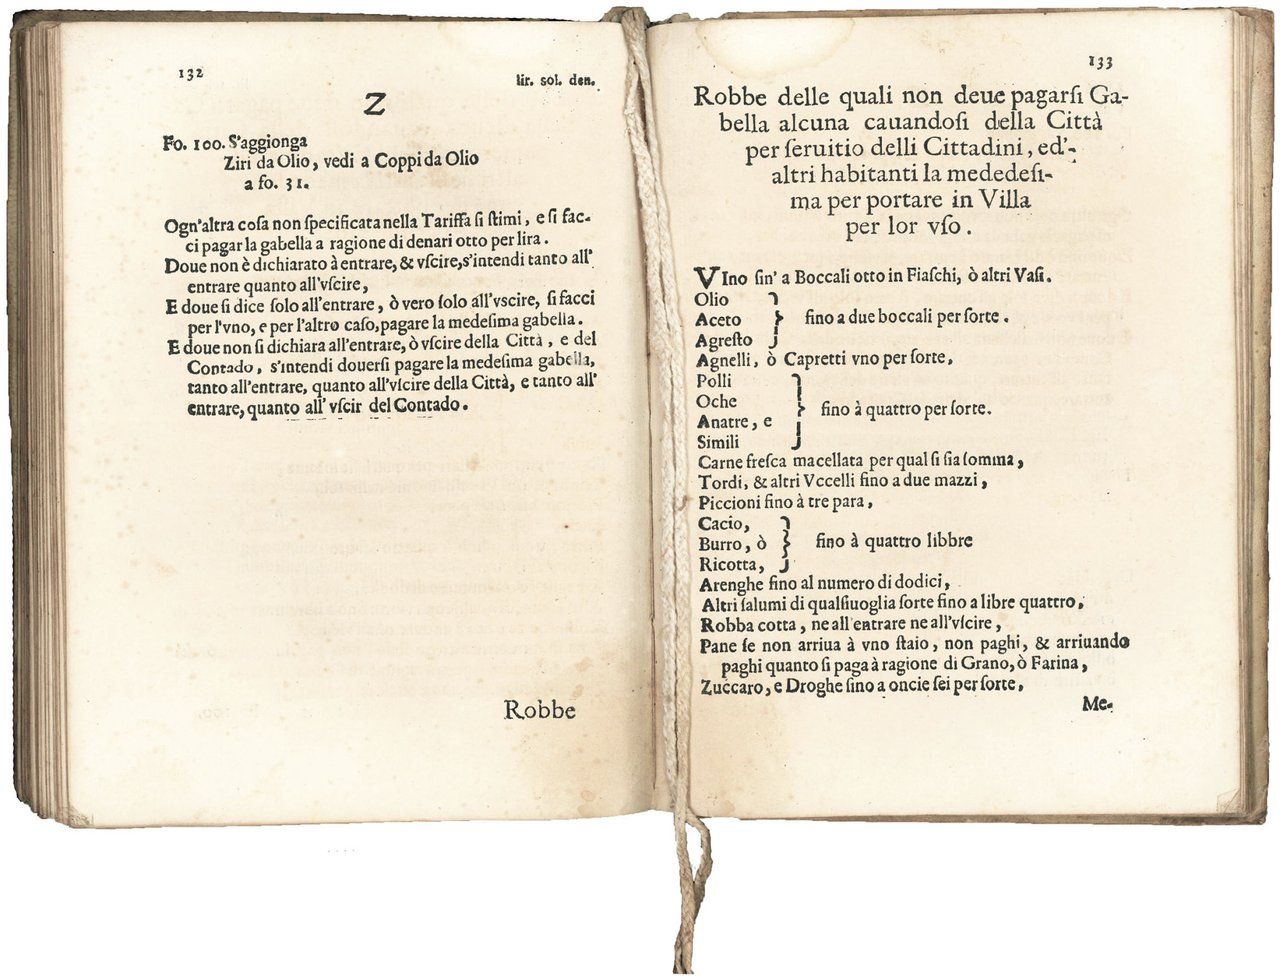 132
lir. sol. den.
Z
Fo. 100. S'aggionga
Ziri da Olio, vedi a Coppi da Olio
a fo. 31.
Ogn'altra cosa non ſpecificata nella Tariffa ſi ſtimi, e ſi fac-
ci pagar la gabella a ragione di denari otto per lira.
Doue non è dichiarato à entrare, & vſcire, s'intendi tanto all'
entrare quanto all'vſcire,
E doue ſi dice ſolo all'entrare, ò vero ſolo all'vscire, ſi facci
per l'vno, e per l'altro caſo, pagare la medeſima gabella.
E doue non ſi dichiara all'entrare, ò vſcire della Città, e del
Contado, s'intendi douerſi pagare la medeſima gabella,
tanto all'entrare, quanto all'vſcire della Città, e tanto all'
entrare, quanto all' vſcir del Contado.
Robbe
133
Robbe delle quali non deue pagarſi Ga-
bella alcuna cauandoſi della Città
per ſeruitio delli Cittadini, ed'-
altri habitanti la mededeſi-
ma per portare in Villa
per lor vſo.
VIno ſin' a Boccali otto in Fiaſchi, ò altri Vaſi.
Olio
Aceto } fino a due boccali per ſorte.
Agreſto
Agnelli, ò Capretti vno per ſorte,
Polli
Oche } fino à quattro per ſorte.
Anatre, e
Simili
Carne freſca macellata per qual ſi ſia ſomma,
Tordi, & altri Vccelli fino a due mazzi,
Piccioni fino à tre para,
Cacio,
Burro, ò } fino à quattro libbre
Ricotta,
Arenghe fino al numero di dodici,
Altri ſalumi di qualſiuoglia ſorte fino a libre quattro,
Robba cotta, ne all'entrare ne all'vſcire,
Pane ſe non arriua à vno ſtaio, non paghi, & arriuando
paghi quanto ſi paga à ragione di Grano, ò Farina,
Zuccaro, e Droghe fino a oncie ſei per ſorte,
Me-